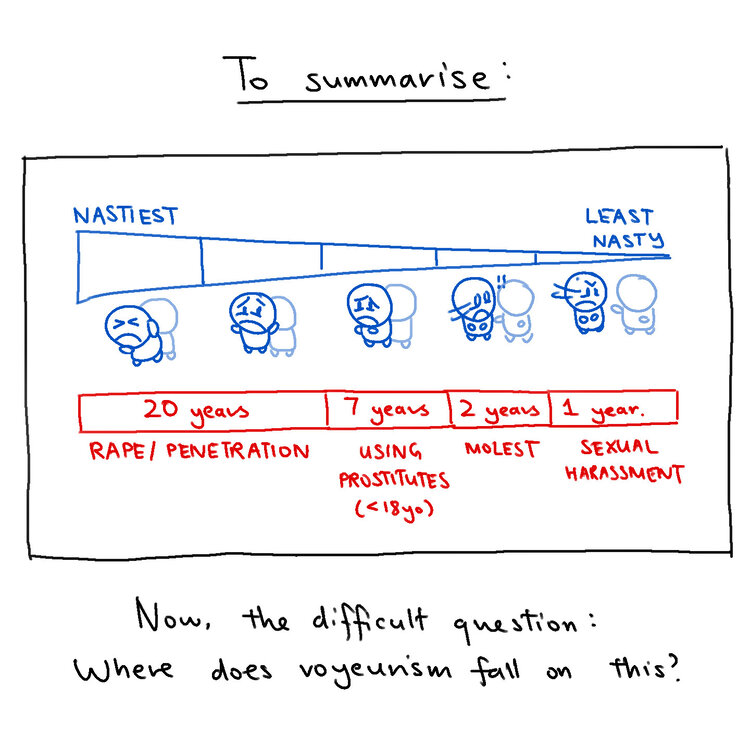 To summarise:
NASTIEST
LEAST
NASTY
!!
20 years
7 years
2 years
1 year.
RAPE/PENETRATION
USING
PROSTITUTES
(<18yo)
MOLEST
SEXUAL
HARASSMENT
Now, the difficult question:
Where does voyeurism fall on this?